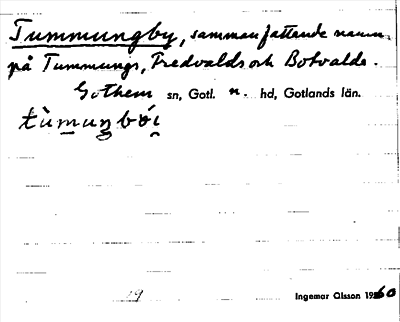 Tummungby, sammanfattande namn
på Tummungs, Fredvalds och Botvalde.
Gothem sn, Gotl. n. hd, Gotlands län.
19
Ingemar Olsson 1960